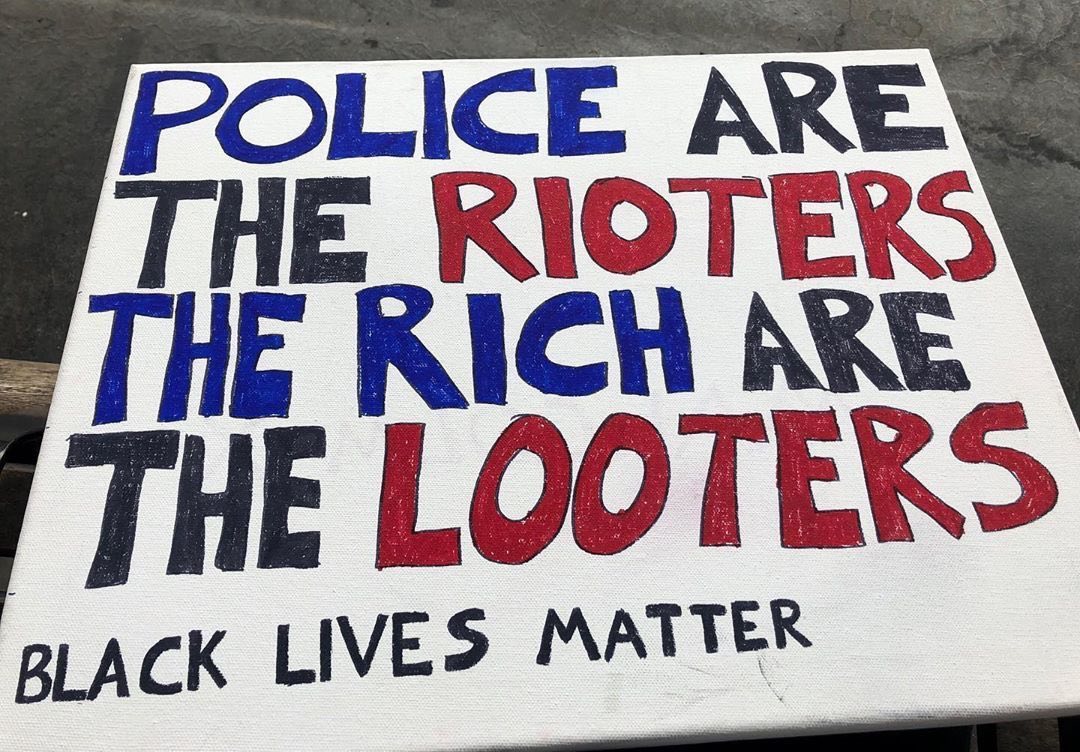 POLICE ARE
THE RIOTERS
THE RICH ARE
THE LOOTERS
BLACK LIVES MATTER